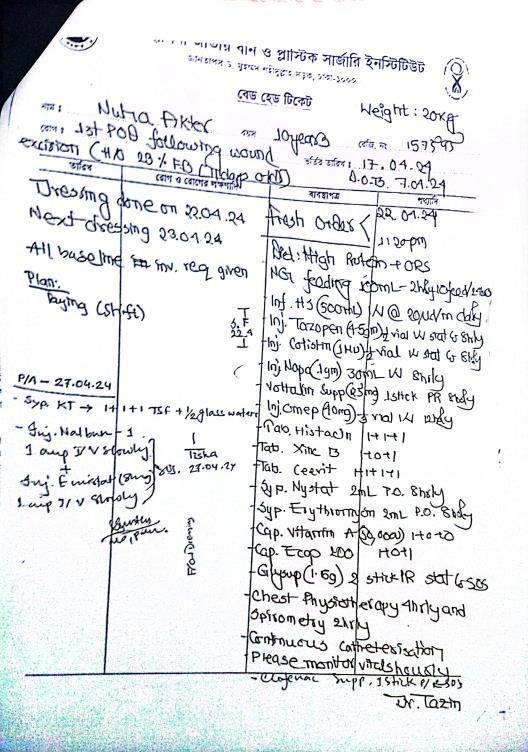 জাতীয় বার্ন ও প্লাস্টিক সার্জারি ইনস্টিটিউট
ঢাকা-১০০০
বেড হেড টিকেট
Weight: 20kg
নাম : Nutra Akter
বয়স 10years
রেজি. নং 157593
রোগ : 1st POD following wound
excision (H/O 23% FB (
ভর্তির তারিখ : 17.04.24
D.O.B. 7.04.24
তারিখ
রোগ ও রোগের লক্ষণাদি
ব্যবস্থাপত্র
পথ্যাদি
Dressing done on 22.04.24
Next dressing 23.04.24
All baseline inv. req given
Plan:
Paying (Shift)
P/A - 27.04.24
- Syp. KT → 1+1+1 TSF + 1/2 glass water
- Inj. Nalbun - 1
1 amp I/V slowly
+
Inj. Emistat (8mg)
1 amp I/V slowly
Tisha
27.04.24
Fresh Order < 22.04.24
11:20pm
Diet: High Protein + ORS
NG feeding 100mL - 2hrly
- Inf. HS (500mL) IV @ 20d/m daily
- Inj. Tazopen (4.5gm) 1/2 vial IV stat & 8hrly
- Inj. Colistin (1MU) 1/2 vial IV stat & 8hrly
- Inj. Napa (1gm) 30mL IV 8hrly
- Voltalin Supp (25mg) 1 stick PR 8hrly
- Inj. Omep (40mg) 1/2 vial IV 12hrly
- Tab. Histacin 1+1+1
- Tab. Xinc B 1+0+1
- Tab. Ceevit 1+1+1
- Syp. Nystat 2mL P.O. 8hrly
- Syp. Erythromycin 2mL P.O. 8hrly
- Cap. Vitamin A (50,000) 1+0+0
- Cap. Ecap 200 1+0+1
- Glysup (1.15g) 2 stick PR stat & SOS
- Chest Physiotherapy 4hrly and
Spirometry 2hrly
- Continuous Catheterisation
- Please monitor vitals hourly
- Clofenac Supp. 1 stick P/R SOS
Dr. Tazin